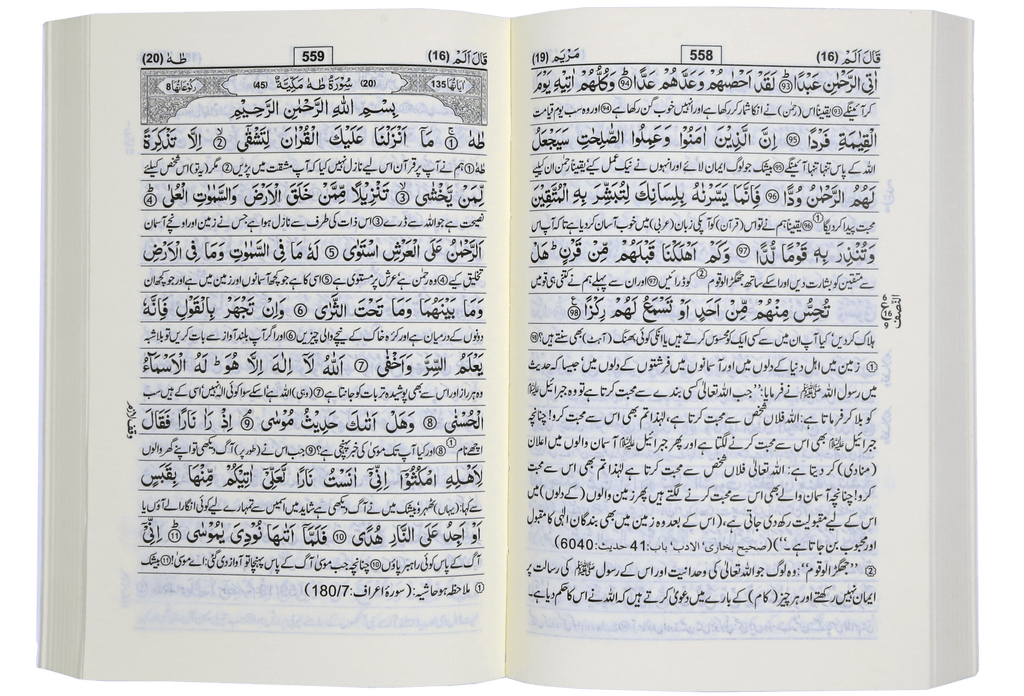 قَالَ اَلَمْ (16)
558
مَرْيَم (19)
اٰتِي الرَّحْمٰنِ عَبْدًا ﴿93﴾ لَقَدْ اَحْصٰىهُمْ وَعَدَّهُمْ عَدًّا ﴿94﴾ وَكُلُّهُمْ اٰتِيْهِ يَوْمَ
کر آئینگے ﴿93﴾ یقیناً اس (رحمٰن) نے انکا شمار کر رکھا ہے اور انہیں خوب گن رکھا ہے ﴿94﴾ اور وہ سب یوم قیامت
الْقِيٰمَةِ فَرْدًا ﴿95﴾ اِنَّ الَّذِيْنَ اٰمَنُوْا وَعَمِلُوا الصّٰلِحٰتِ سَيَجْعَلُ
اللہ کے پاس تنہا تنہا آئینگے ﴿95﴾ بیشک جو لوگ ایمان لائے اور انہوں نے نیک عمل کئے یقیناً رحمٰن ان کیلئے
لَهُمُ الرَّحْمٰنُ وُدًّا ﴿96﴾ فَاِنَّمَا يَسَّرْنٰهُ بِلِسَانِكَ لِتُبَشِّرَ بِهِ الْمُتَّقِيْنَ
محبت پیدا کر دیگا ① ﴿96﴾ یقیناً ہم نے تو اس (قرآن) کو آپکی زبان (عربی) میں خوب آسان کر دیا ہے تا کہ آپ اس
وَتُنْذِرَ بِهٖ قَوْمًا لُّدًّا ﴿97﴾ وَكَمْ اَهْلَكْنَا قَبْلَهُمْ مِّنْ قَرْنٍ ؕ هَلْ
سے متقین کو بشارت دیں اور اسکے ساتھ جھگڑالو قوم ② کو ڈرائیں ﴿97﴾ اور ان سے پہلے ہم نے کتنی ہی قومیں
تُحِسُّ مِنْهُمْ مِّنْ اَحَدٍ اَوْ تَسْمَعُ لَهُمْ رِكْزًا ﴿98﴾
ہلاک کر دیں' کیا آپ ان میں سے کسی ایک کو محسوس کرتے ہیں یا انکی کوئی بھنک (آہٹ) بھی سنتے ہیں؟ ﴿98﴾
① زمین میں اہل دنیا کے دلوں میں اور آسمانوں میں فرشتوں کے دلوں میں' جیسا کہ حدیث
میں رسول اللہ ﷺ نے فرمایا: ''جب اللہ تعالیٰ کسی بندے سے محبت کرتا ہے تو وہ جبرائیل علیہ السلام
کو بلا کر فرماتا ہے: اللہ فلاں شخص سے محبت کرتا ہے، لہٰذا تم بھی اس سے محبت کرو! چنانچہ
جبرائیل علیہ السلام بھی اس سے محبت کرنے لگتا ہے اور پھر جبرائیل علیہ السلام آسمان والوں میں اعلان
(منادی) کر دیتا ہے: اللہ تعالیٰ فلاں شخص سے محبت کرتا ہے لہٰذا تم بھی اس سے محبت
کرو! چنانچہ آسمان والے بھی اس سے محبت کرنے لگتے ہیں پھر زمین والوں (کے دلوں) میں
اس کے لیے مقبولیت رکھ دی جاتی ہے، (اس کے بعد وہ زمین میں بھی بندگان الٰہی کا مقبول
اور محبوب بن جاتا ہے۔'')(صحیح بخاری' الادب' باب: 41 حدیث: 6040)
② ''جھگڑالو قوم'': وہ لوگ جو اللہ تعالیٰ کی وحدانیت اور اس کے رسول ﷺ کی رسالت پر
ایمان نہیں رکھتے اور ہر چیز (کام) کے بارے میں دعویٰ کرتے ہیں کہ اللہ نے اس کا حکم دیا ہے۔
النصف
16
قَالَ اَلَمْ (16)
559
طٰهٰ (20)
اٰيَاتُهَا 135
(20) سُوْرَةُ طٰهٰ مَكِّيَّةٌ (45)
رُكُوْعَاتُهَا 8
بِسْمِ اللهِ الرَّحْمٰنِ الرَّحِيْمِ
طٰهٰ ﴿1﴾ مَاۤ اَنْزَلْنَا عَلَيْكَ الْقُرْاٰنَ لِتَشْقٰۤى ﴿2﴾ اِلَّا تَذْكِرَةً
طٰہٰ ﴿1﴾ ہم نے آپ پر قرآن اس لیے نازل نہیں کیا کہ آپ مشقت میں پڑیں ﴿2﴾ مگر (یہ تو) اس شخص کیلئے
لِّمَنْ يَّخْشٰى ﴿3﴾ تَنْزِيْلًا مِّمَّنْ خَلَقَ الْاَرْضَ وَالسَّمٰوٰتِ الْعُلٰى ﴿4﴾
نصیحت ہے جو اللہ سے ڈرے ﴿3﴾ اس ذات کی طرف سے نازل ہوا ہے جس نے زمین اور اونچے آسمان
اَلرَّحْمٰنُ عَلَى الْعَرْشِ اسْتَوٰى ﴿5﴾ لَهٗ مَا فِي السَّمٰوٰتِ وَمَا فِي الْاَرْضِ
تخلیق کیے ﴿4﴾ وہ رحمٰن ہے' عرش پر مستوی ہے ﴿5﴾ اسی کا ہے جو کچھ آسمانوں اور زمین میں ہے اور جو کچھ ان
وَمَا بَيْنَهُمَا وَمَا تَحْتَ الثَّرٰى ﴿6﴾ وَاِنْ تَجْهَرْ بِالْقَوْلِ فَاِنَّهٗ
دونوں کے درمیان ہے اور کرّہ خاک کے نیچے والی چیزیں ﴿6﴾ اور اگر آپ بلند آواز سے بات کریں تو بلا شبہ
يَعْلَمُ السِّرَّ وَاَخْفٰى ﴿7﴾ اَللهُ لَاۤ اِلٰهَ اِلَّا هُوَ ؕ لَهُ الْاَسْمَآءُ
وہ ہر راز اور اس سے بھی پوشیدہ تر بات کو جانتا ہے ﴿7﴾ (وہی) اللہ ہے اسکے سوا کوئی الٰہ نہیں' اسی کے ہیں سب
الْحُسْنٰى ﴿8﴾ وَهَلْ اَتٰىكَ حَدِيْثُ مُوْسٰى ﴿9﴾ اِذْ رَاٰ نَارًا فَقَالَ
اچھے نام ① ﴿8﴾ اور کیا آپ تک موسیٰ کی خبر پہنچی ہے؟ ﴿9﴾ جب اس نے (طور پر) آگ دیکھی تو اپنے گھر والوں
لِاَهْلِهِ امْكُثُوْۤا اِنِّيْۤ اٰنَسْتُ نَارًا لَّعَلِّيْۤ اٰتِيْكُمْ مِّنْهَا بِقَبَسٍ
سے کہا: (یہاں) ٹھہرو' بیشک میں نے آگ دیکھی ہے شاید میں اس میں سے تمہارے لیے کوئی انگارا لے آؤں یا
اَوْ اَجِدُ عَلَى النَّارِ هُدًى ﴿10﴾ فَلَمَّاۤ اَتٰىهَا نُوْدِيَ يٰمُوْسٰى ﴿11﴾ اِنِّيْۤ
آگ کے پاس کوئی راہبر پاؤں ﴿10﴾ چنانچہ جب موسیٰ آگ کے پاس پہنچا تو آواز دی گئی: اے موسیٰ! ﴿11﴾ بیشک
① ملاحظہ ہو حاشیہ: (سورۂ اعراف: 180/7)